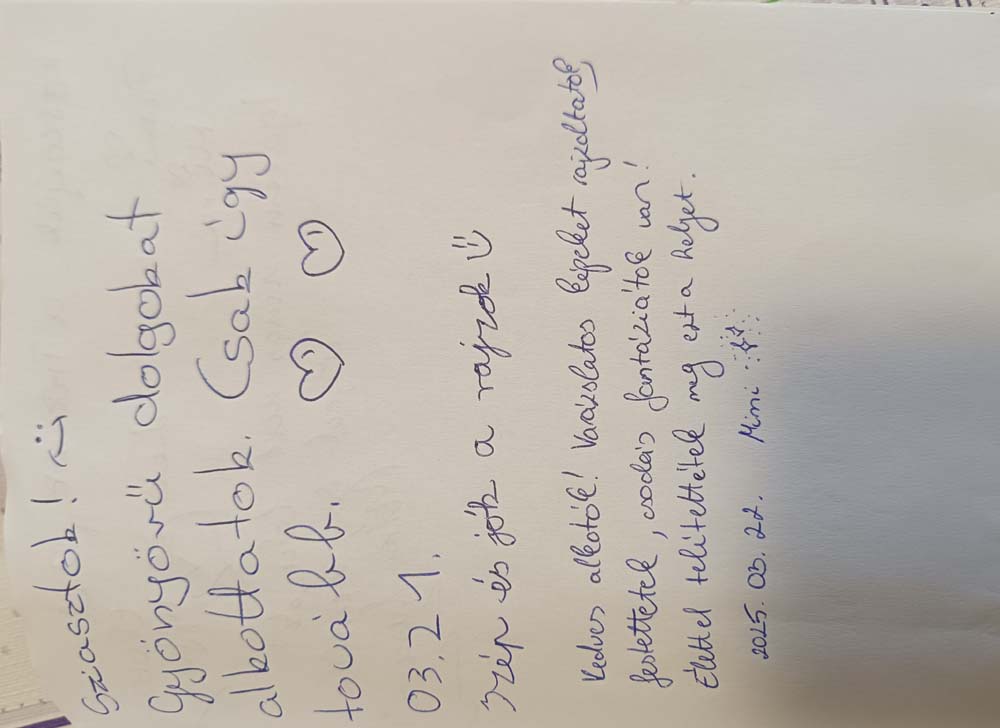 Sziasztok! :)
Gyönyörű dolgokat
alkottatok. Csak így
tovább. ♡ ♡
03.21.
Szép és jók a rajzok :)
Kedves alkotók! Varázslatos képeket rajzoltatok,
festettetek, csodás fantáziátok van!
Élettel telítettétek meg ezt a helyet.
2025. 03. 22. Mimi